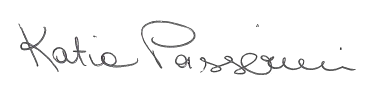 Katia Passerini